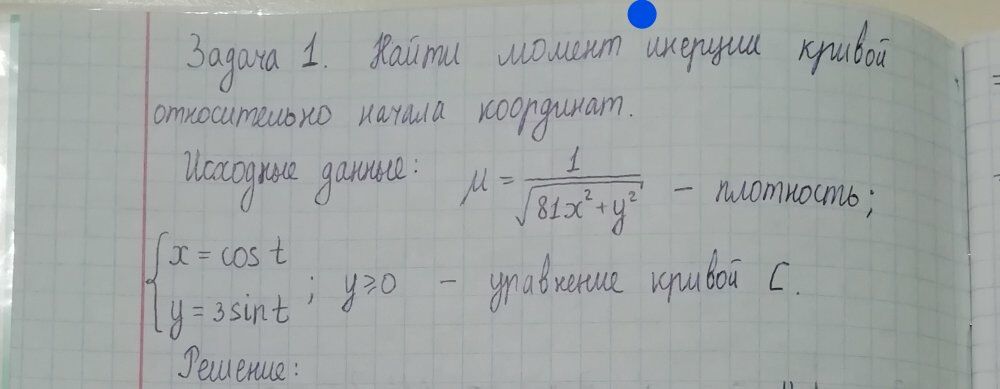 Задача 1. Найти момент инерции кривой
относительно начала координат.
Исходные данные: μ = 1/√(81x²+y²) – плотность;
{ x = cos t
y = 3 sin t ; y ≥ 0 – уравнение кривой C.
Решение: